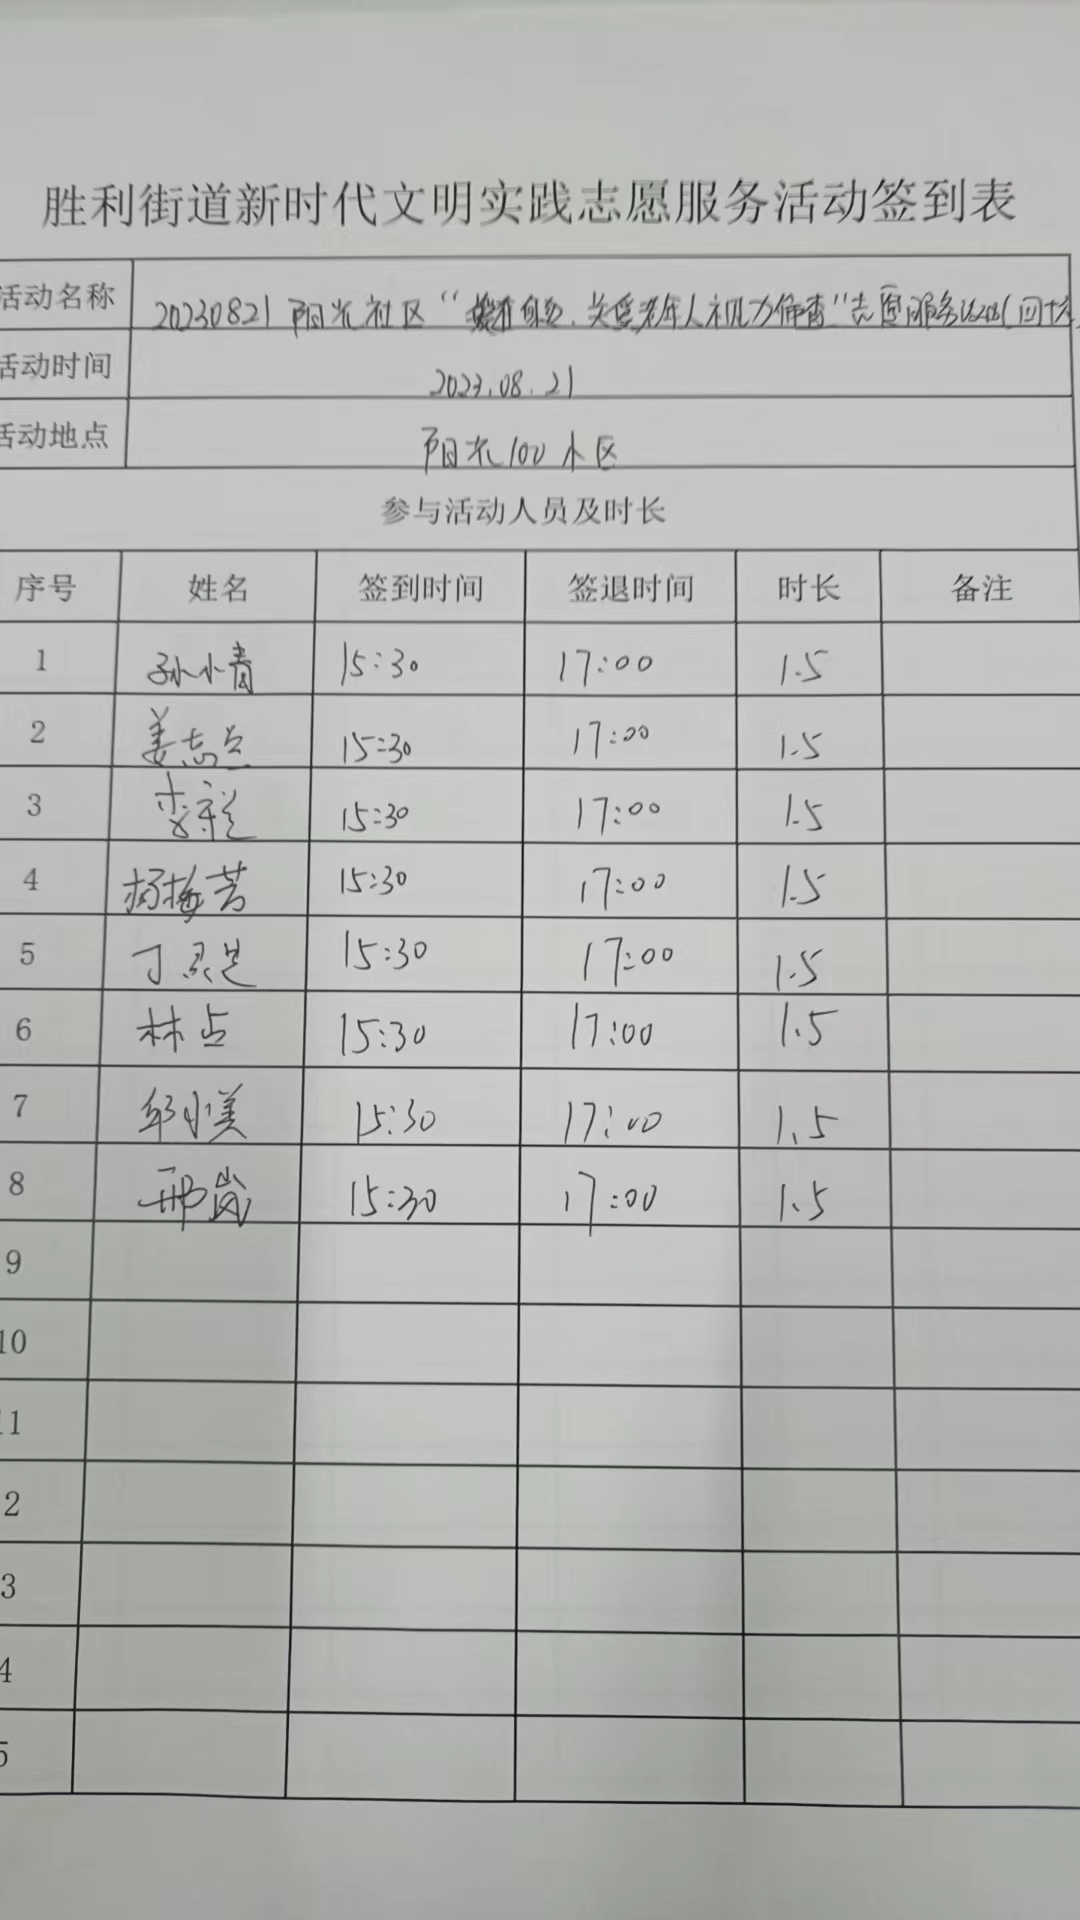 胜利街道新时代文明实践志愿服务活动签到表
活动名称 20230821 阳光社区“ 关爱老年人视力筛查”志愿服务活动(四十
活动时间 2023.08.21
活动地点 阳光100小区
参与活动人员及时长
序号 姓名 签到时间 签退时间 时长 备注
1 孙小青 15:30 17:00 1.5
2 姜志 15:30 17:00 1.5
3 15:30 17:00 1.5
4 杨梅芳 15:30 17:00 1.5
5 丁 15:30 17:00 1.5
6 林 15:30 17:00 1.5
7 邱小美 15:30 17:00 1.5
8 邢岚 15:30 17:00 1.5
9
10
11
2
3
4
5